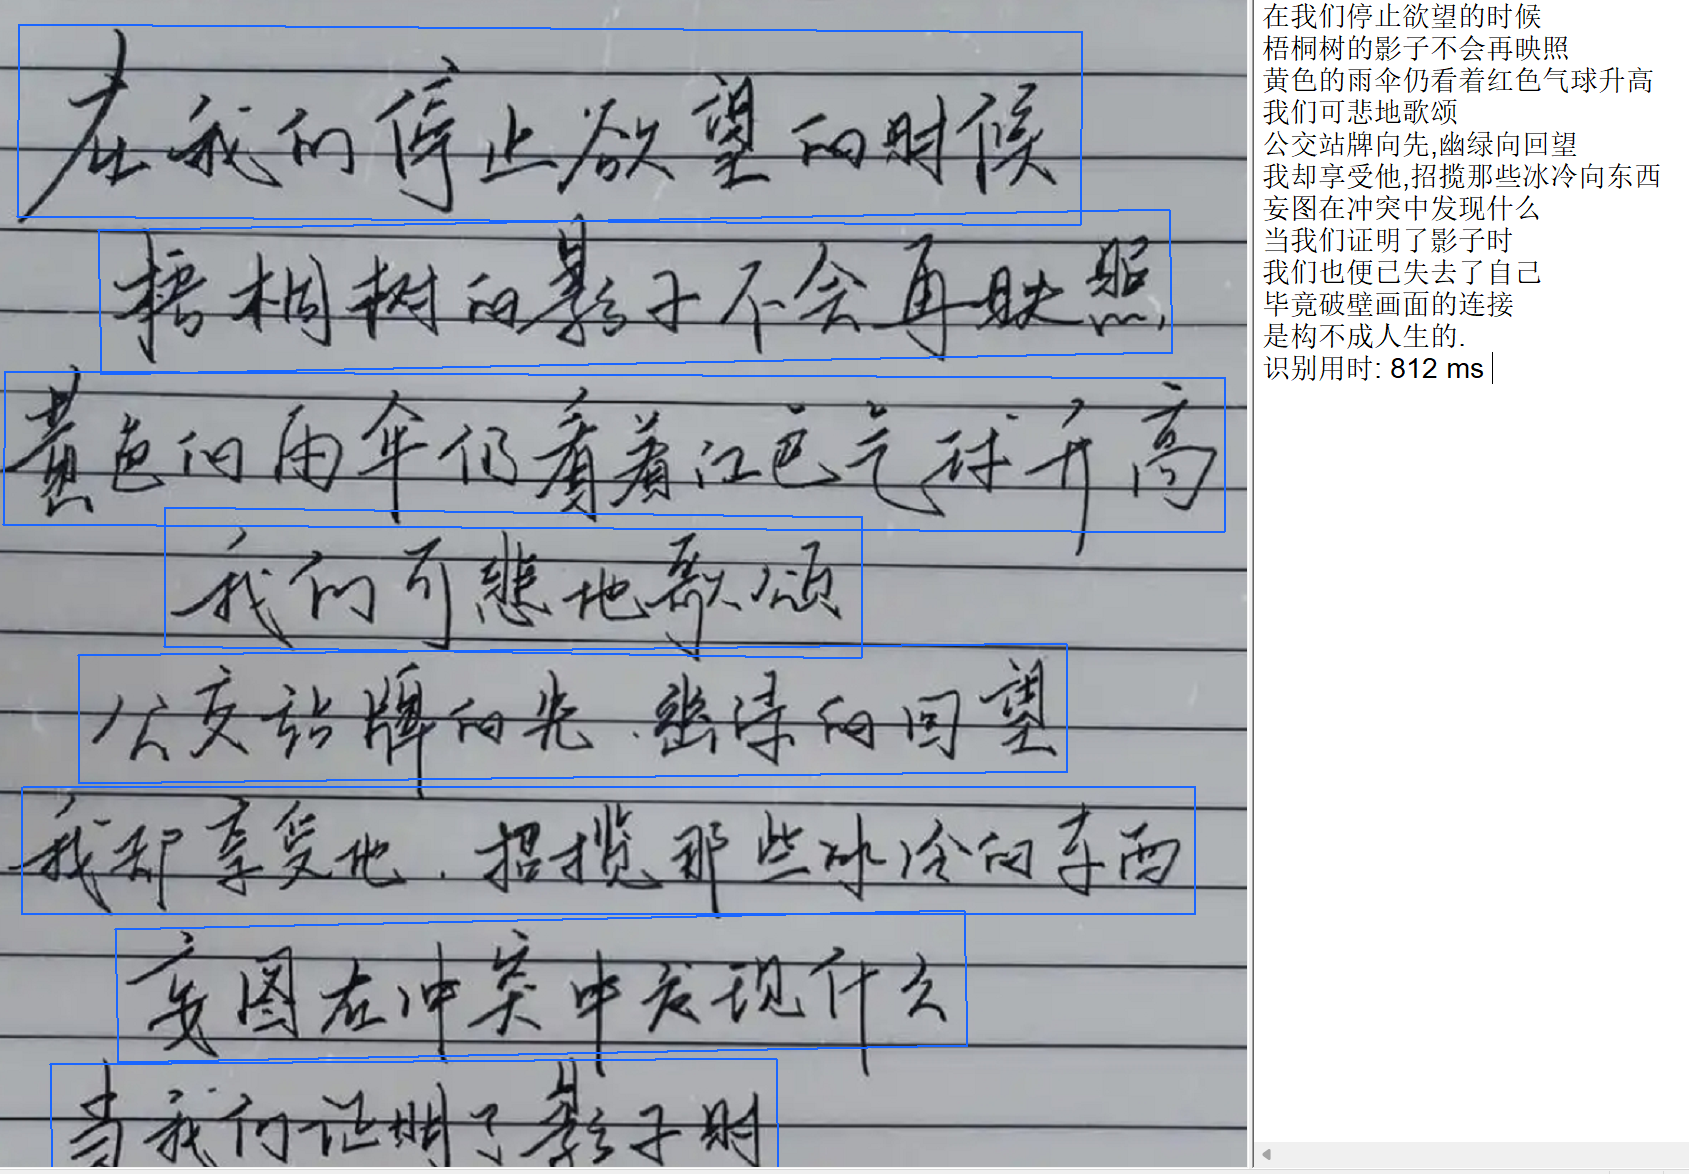 在我们停止欲望的时候
梧桐树的影子不会再映照
黄色的雨伞仍看着红色气球升高
我们可悲地歌颂
公交站牌的光.幽绿的回望
我却享受地.招揽那些冰冷的东西
妄图在冲突中发现什么
当我们证明了影子时
在我们停止欲望的时候
梧桐树的影子不会再映照
黄色的雨伞仍看着红色气球升高
我们可悲地歌颂
公交站牌向先,幽绿向回望
我却享受他,招揽那些冰冷向东西
妄图在冲突中发现什么
当我们证明了影子时
我们也便已失去了自己
毕竟破壁画面的连接
是构不成人生的.
识别用时: 812 ms